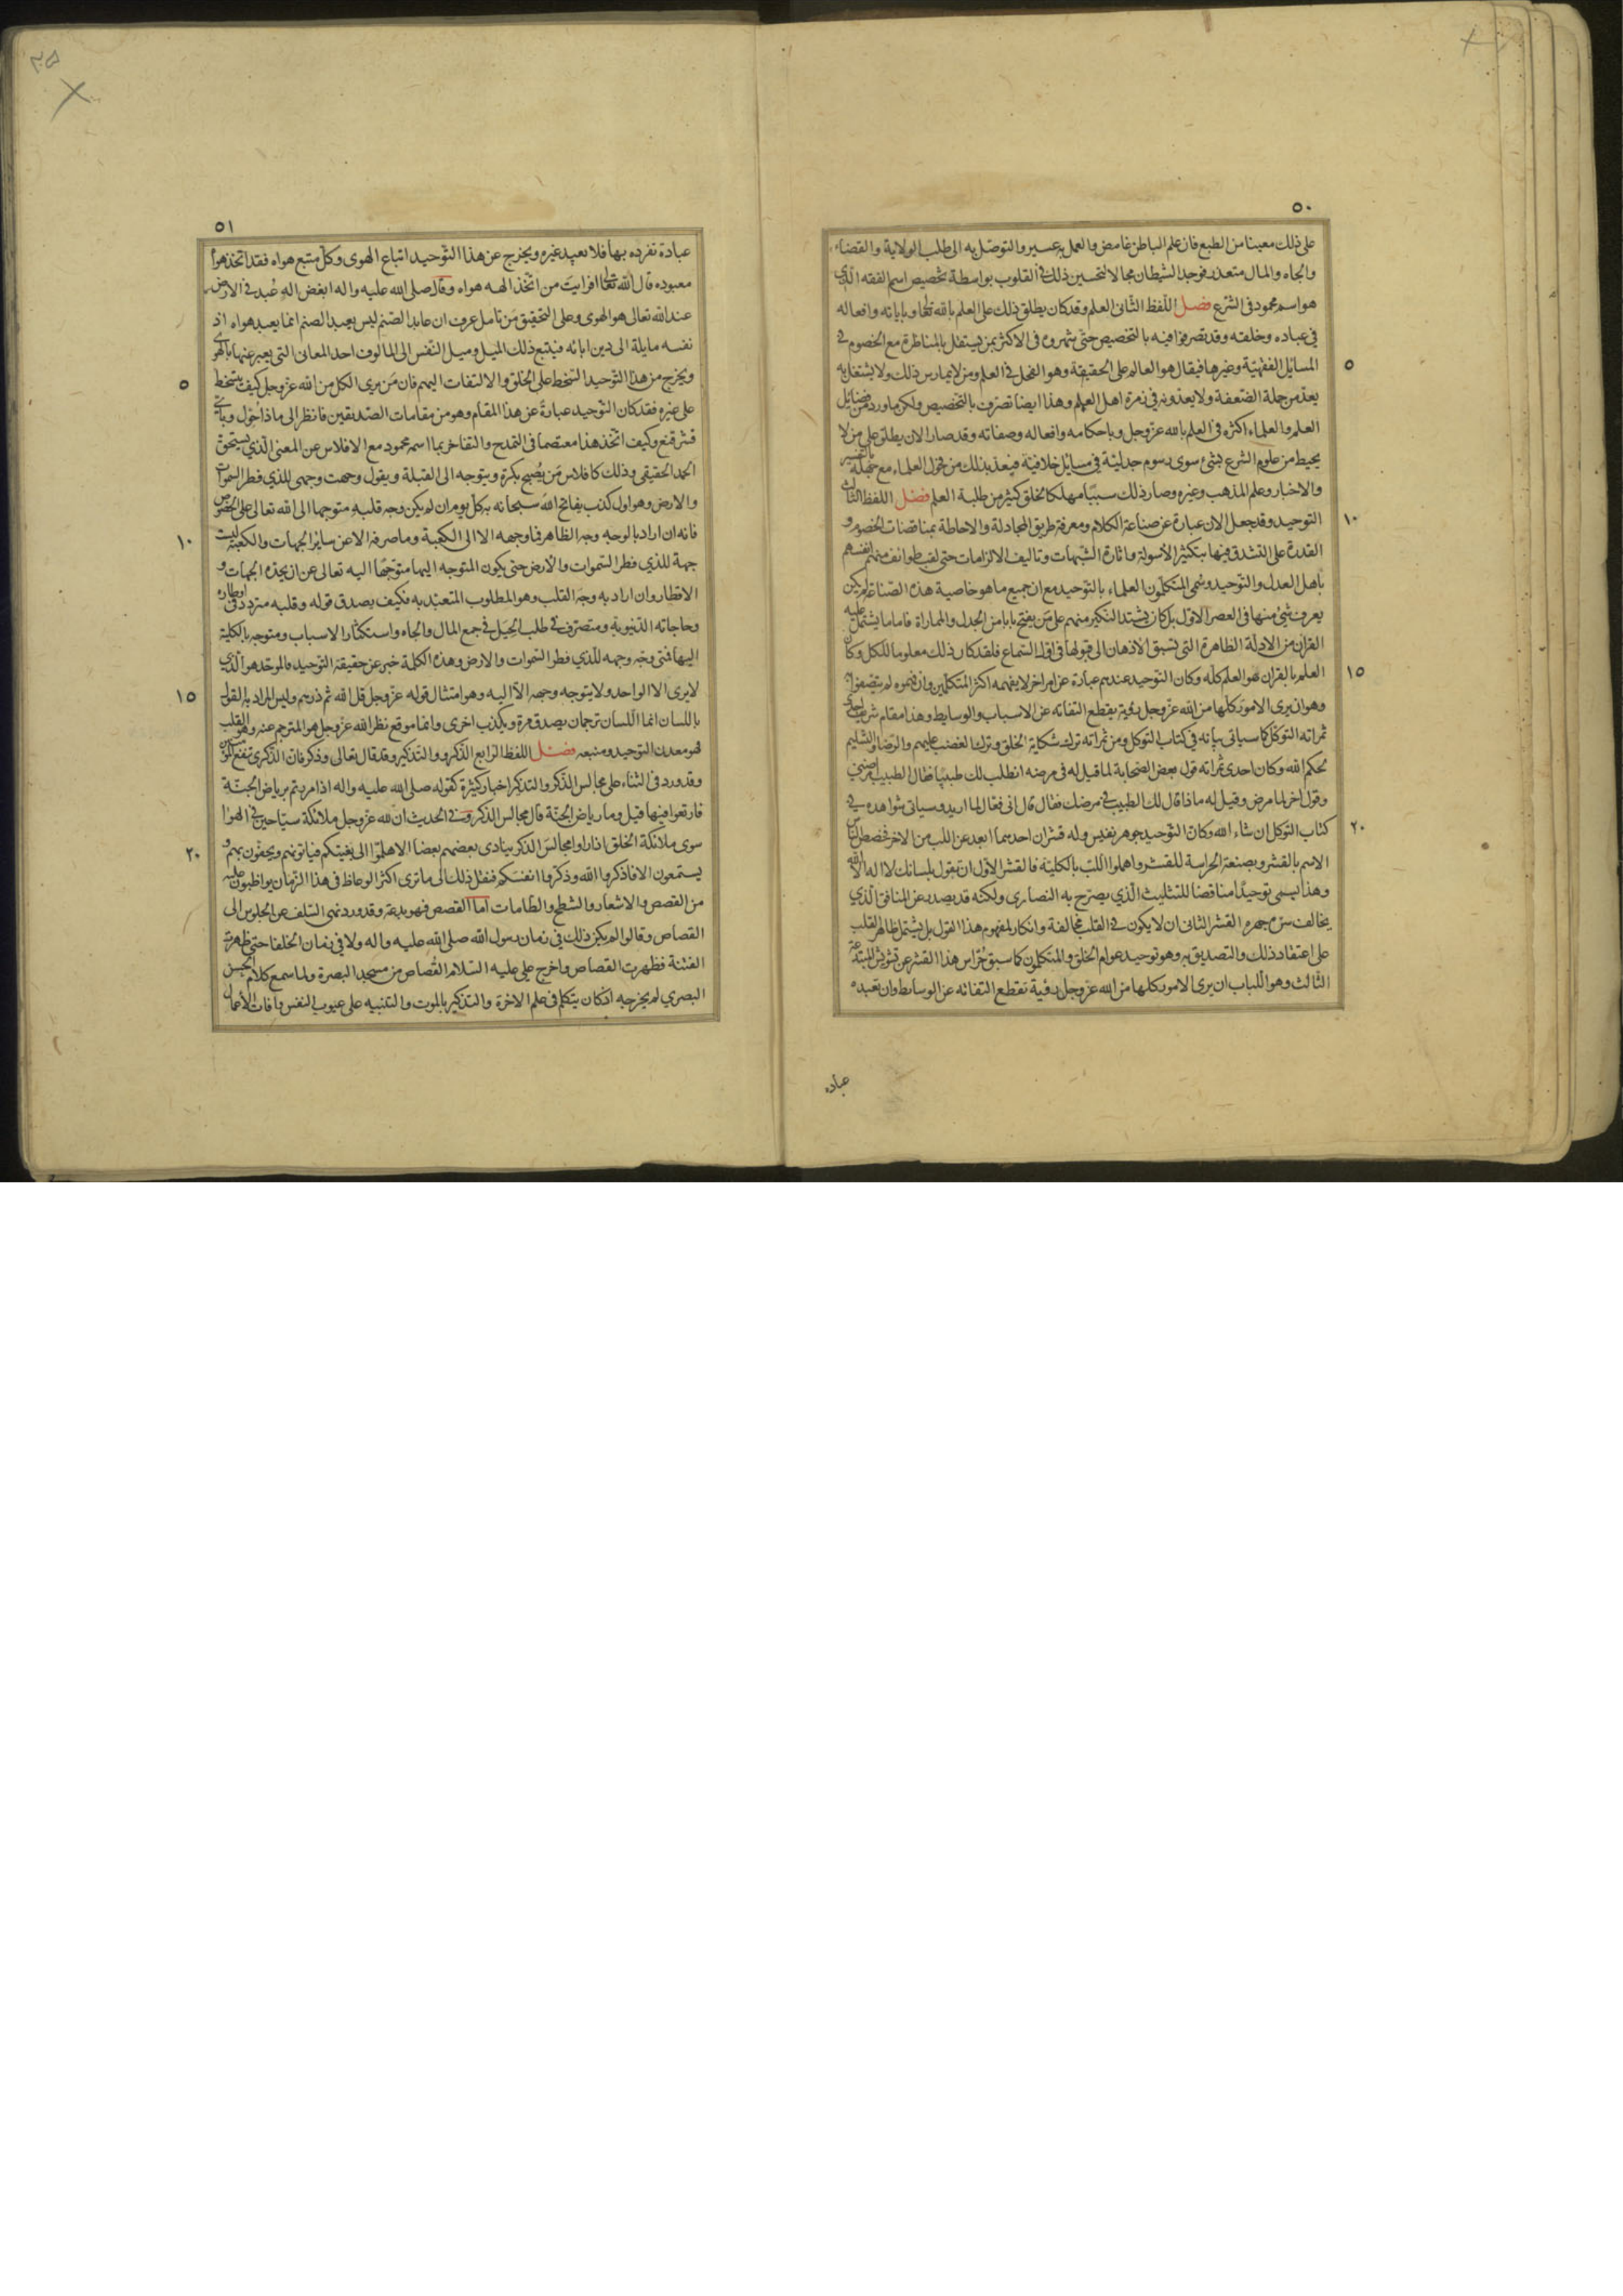 ٥٠
على ذلك معينا من الطبع فان علم الباطن غامض والعمل به عسير والتوصّل به الى طلب الولاية والقضاء
والجاه والمال متعذر فوجد الشيطان مجالا لتحسين ذلك فى القلوب بواسطة تخصيص اسم الفقه الّذى
هو اسم محمود فى الشرع فصل اللّفظ الثّانى العلم وقد كان يطلق ذلك على العلم بالله تعالى وباياته وافعاله
في عباده وخلقه وقد تصرفوا فيه بالتخصيص حتّى شهروه فى الاكثر بمن يشتغل بالمناظرة مع الخصوم فى
٥
المسائل الفقهيّة وغيرها فيقال هو العالم على الحقيقة وهو الفحل فى العلم ومن لا يمارس ذلك ولا يشتغل به
يعدّ من جملة الضعفة ولا يعدّونه فى زمرة اهل العلم وهذا ايضا تصرّف بالتخصيص ولكن ما ورد من فضايل
العلم والعلماء اكثره فى العلم بالله عزّ وجل وباحكامه وافعاله وصفاته وقد صار الان يطلق على من لا
يحيط من علوم الشرع بشئ سوى رسوم جدليّة فى مسايل خلافيّة فيعدّ بذلك من فحول العلماء مع جهله بالتفسير
والاخبار وعلم المذهب وغيره وصار ذلك سببًا مهلكا لخلق كثير من طلبة العلم فصل اللفظ الثالث
١٠
التوحيد وقد جعل الان عبارة عن صناعة الكلام ومعرفة طريق المجادلة والاحاطة بمناقضات الخصوم و
القدرة على التشدق فيها بتكثير الأسولة واثارة الشبهات وتاليف الالزامات حتى لقب طوائف منهم انفسهم
باهل العدل والتوحيد وسُمى المتكلّمون العلماء بالتوحيد مع ان جميع ما هو خاصية هذه الصّناعة لم يكن
يعرف شئ منها فى العصر الاوّل بل كان يشتد النكير منهم على مَن يفتح بابا من الجدل والمماراة فاما ما يشتمل عليه
القران من الادلة الظاهرة التى تسبق الاذهان الى قبولها فى اوّل السّماع فلقد كان ذلك معلوما للكل وكان
١٥
العلم بالقران هو العلم كلّه وكان التوحيد عندهم عبارة عن امر اخر لا يفهمه اكثر المتكلّمين وان فهموه لم يتّصفوا به
وهو ان يرى الامور كلّها من الله عزّ وجل رؤية يقطع التفاته عن الاسباب والوسايط وهذا مقام شريف احدى
ثمراته التوكل كما سياتى بيانه فى كتاب التوكل ومن ثمراته ترك شكاية الخلق وترك الغضب عليهم والرّضا والتسليم
لحكم الله وكان احدى ثمراته قول بعض الصّحابة لما قيل له فى مرضه انطلب لك طبيبًا فقال الطبيب امرضنى
وقول اخر لما مرض وقيل له ماذا قال لك الطبيب فى مرضك فقال قال انى فعّال لما اريد وسياتى شواهده فى
٢٠
كتاب التوكل ان شاء الله وكان التّوحيد جوهر نفيس وله قشران احدهما ابعد عن اللب من الاخر فخصص الناس
الاسم بالقشر وبصنعة الحراسة للقشر واهملوا اللّب بالكليّة فالقشر الاوّل ان تقول بلسانك لا اله الا الله
وهذا يسمى توحيدًا مناقضا للتثليث الّذي يصرّح به النصارى ولكنّه قد يصدر عن المنافق الّذي
يخالف سرّه جهره القشر الثانى ان لا يكون فى القلب مخالفة وانكار لمفهوم هذا القول بل يشتمل ظاهر القلب
على اعتقاد ذلك والتصديق به وهو توحيد عوام الخلق والمتكلمون كما سبق حُرّاس هذا القشر عن تشويش المبتدعة
الثالث وهو اللّباب ان يرى الامور كلها من الله عزّ وجل رؤية تقطع التفاته عن الوسايط وان تعبده
عبادة
٥١
عبادة تفرده بها فلا تعبد غيره ويخرج عن هذا التّوحيد اتباع الهوى وكلّ متبع هواه فقد اتّخذ هواه
معبوده قال الله تعالى افرايت من اتّخذ الهه هواه وقال صلى الله عليه واله ابغض اله عُبد فى الارض
عند الله تعالى هو الهوى وعلى التحقيق مَن تامل عرف ان عابد الصّنم ليس يعبد الصنم انما يعبد هواه اذ
نفسه مايلة الى دين ابائه فيتبع ذلك الميل وميل النّفس الى المالوف احد المعانى التى يعبر عنها بالهوى
٥
ويخرج من هذا التّوحيد التسخط على الخلق والالتفات اليهم فان مَن يرى الكل من الله عزّ وجل كيف يتسخط
على غيره فقد كان التّوحيد عبارةً عن هذا المقام وهو من مقامات الصّديقين فانظر الى ماذا حُوّل وباىّ
قشر قنع وكيف اتّخذ هذا معتصما فى التمدح والتفاخر بما اسمه محمود مع الافلاس عن المعنى الّذي يستحقّ
الحمد الحقيقى وذلك كافلاس مَن يُصبح بكرة ويتوجه الى القبلة ويقول وجهت وجهى للذي فطر السموات
والارض وهو اول كذب يفاتح الله سبحانه به كلّ يوم ان لم يكن وجه قلبه متوجها الى الله تعالى على الخصوص
١٠
فانه ان اراد بالوجه وجه الظاهر فما وجهه الا الى الكعبة وما صرفه الا عن ساير الجهات والكعبة ليست
جهة للذي فطر السّموات والأرض حتى يكون المتوجه اليها متوجّهًا اليه تعالى عن ان يحدّه الجهات و
الاقطار وان اراد به وجه القلب وهو المطلوب المتعبّد به فكيف يصدق قوله وقلبه متردد فى اوطاره
وحاجاته الدّنيوية ومتصرّف فى طلب الحِيَل فى جمع المال والجاه واستكثار الاسباب ومتوجه بالكلية
اليها فمتى وجّه وجهه للّذي فطر السّموات والارض وهذه الكلمة خبر عن حقيقة التوحيد فالموحّد هو الّذي
١٥
لا يرى الا الواحد ولا يتوجه وجهه الاّ اليه وهو امتثال قوله عزّ وجل قل الله ثم ذرهم وليس المراد به القول
باللسان انما اللّسان ترجمان يصدق مرة ويكذب اخرى وانما موقع نظر الله عزّ وجل هو المترجم عنه وهو القلب
فهو معدن التوحيد ومنبعه فصل اللفظ الرّابع الذّكر والتّذكير وقد قال تعالى وذكر فان الذّكرى تنفع المؤمنين
وقد ورد فى الثناء على مجالس الذّكر والتذكير اخبار كثيرة كقوله صلى الله عليه واله اذا مررتم برياض الجنّة
فارتعوا فيها قيل وما رياض الجنّة قال مجالس الذكر وفى الحديث ان لله عزّ وجل ملائكة سيّاحين فى الهوا
٢٠
سوى ملائكة الخلق اذا راوا مجالس الذكر ينادى بعضهم بعضا الا هلمّوا الى بغيتكم فياتونهم ويحفّون بهم و
يستمعون الا فاذكروا الله وذكّروا انفسكم فنقل ذلك الى ما ترى اكثر الوعاظ فى هذا الزّمان يواظبون عليه
من القصص والاشعار والشطح والطّامات اما القصص فهو بدعة وقد ورد نهى السّلف عن الجلوس الى
القصاص وقالوا لم يكن ذلك في زمان رسول الله صلى الله عليه واله ولا فى زمان الخلفا حتى ظهرت
الفتنة فظهرت القصاص واخرج على عليه السّلام القُصاص من مسجد البصرة ولما سمع كلام الحسن
البصري لم يخرجه اذ كان يتكلم فى علم الاخرة والتذكير بالموت والتنبيه على عيوب النفس وافات الأعمال